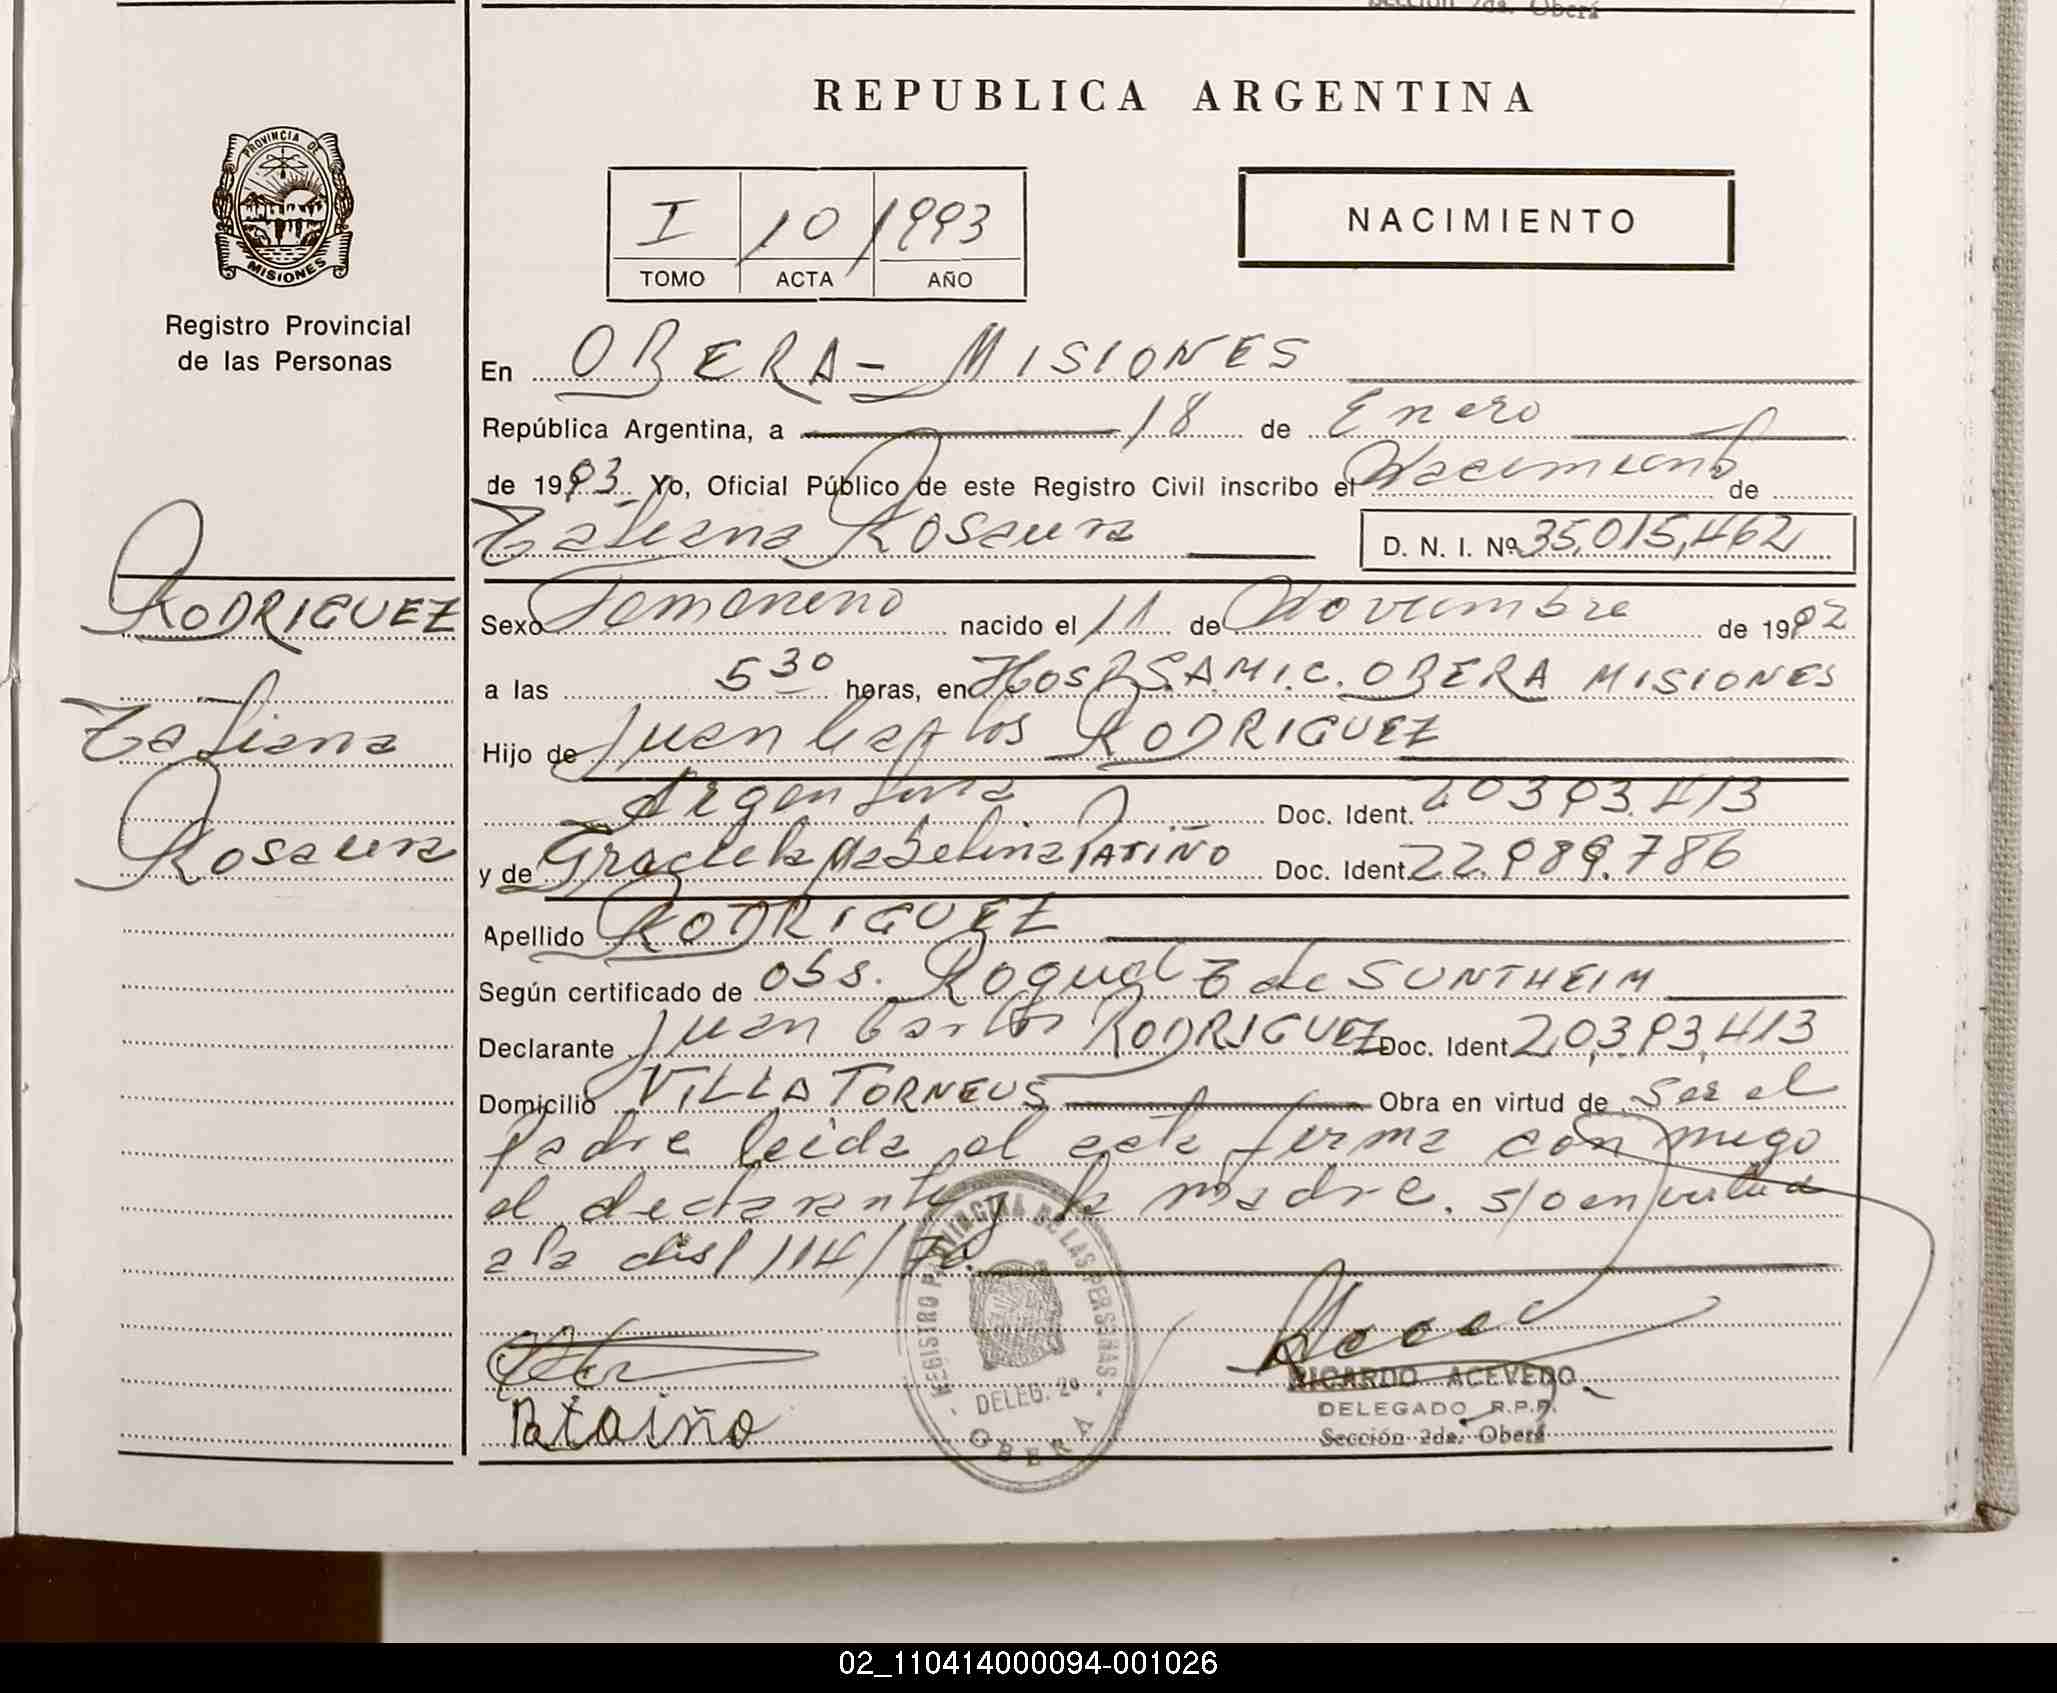 Sección 2da. Oberá
REPUBLICA ARGENTINA
PROVINCIA DE
MISIONES
Registro Provincial
de las Personas
I 10 1993
TOMO ACTA AÑO
NACIMIENTO
En OBERA - MISIONES
República Argentina, a 18 de Enero
de 1993 Yo, Oficial Público de este Registro Civil inscribo el Nacimiento de
Tatiana Rosaura D. N. I. Nº 35,015,462
RODRIGUEZ
Tatiana
Rosaura
Sexo Femenino nacido el 11 de Noviembre de 1992
a las 5 30 horas, en Hosp. S.A.M.I.C. OBERA MISIONES
Hijo de Juan Carlos RODRIGUEZ
Argentina Doc. Ident. 20393.413
y de Graciela PATIÑO Doc. Ident. 22.989.786
Apellido RODRIGUEZ
Según certificado de obs. Z de SUNTHEIM
Declarante Juan Carlos RODRIGUEZ Doc. Ident 20,393,413
Domicilio VILLA TORNEUS Obra en virtud de ser el
padre leida el acta firma conmigo
el declarante y la madre. s/o en virtud
a la disp 114/70.
REGISTRO PROVINCIAL DE LAS PERSONAS
DELEG. 2º
OBERA
Patiño
RICARDO ACEVEDO
DELEGADO R.P.P.
Sección 2da. Oberá
02_110414000094-001026